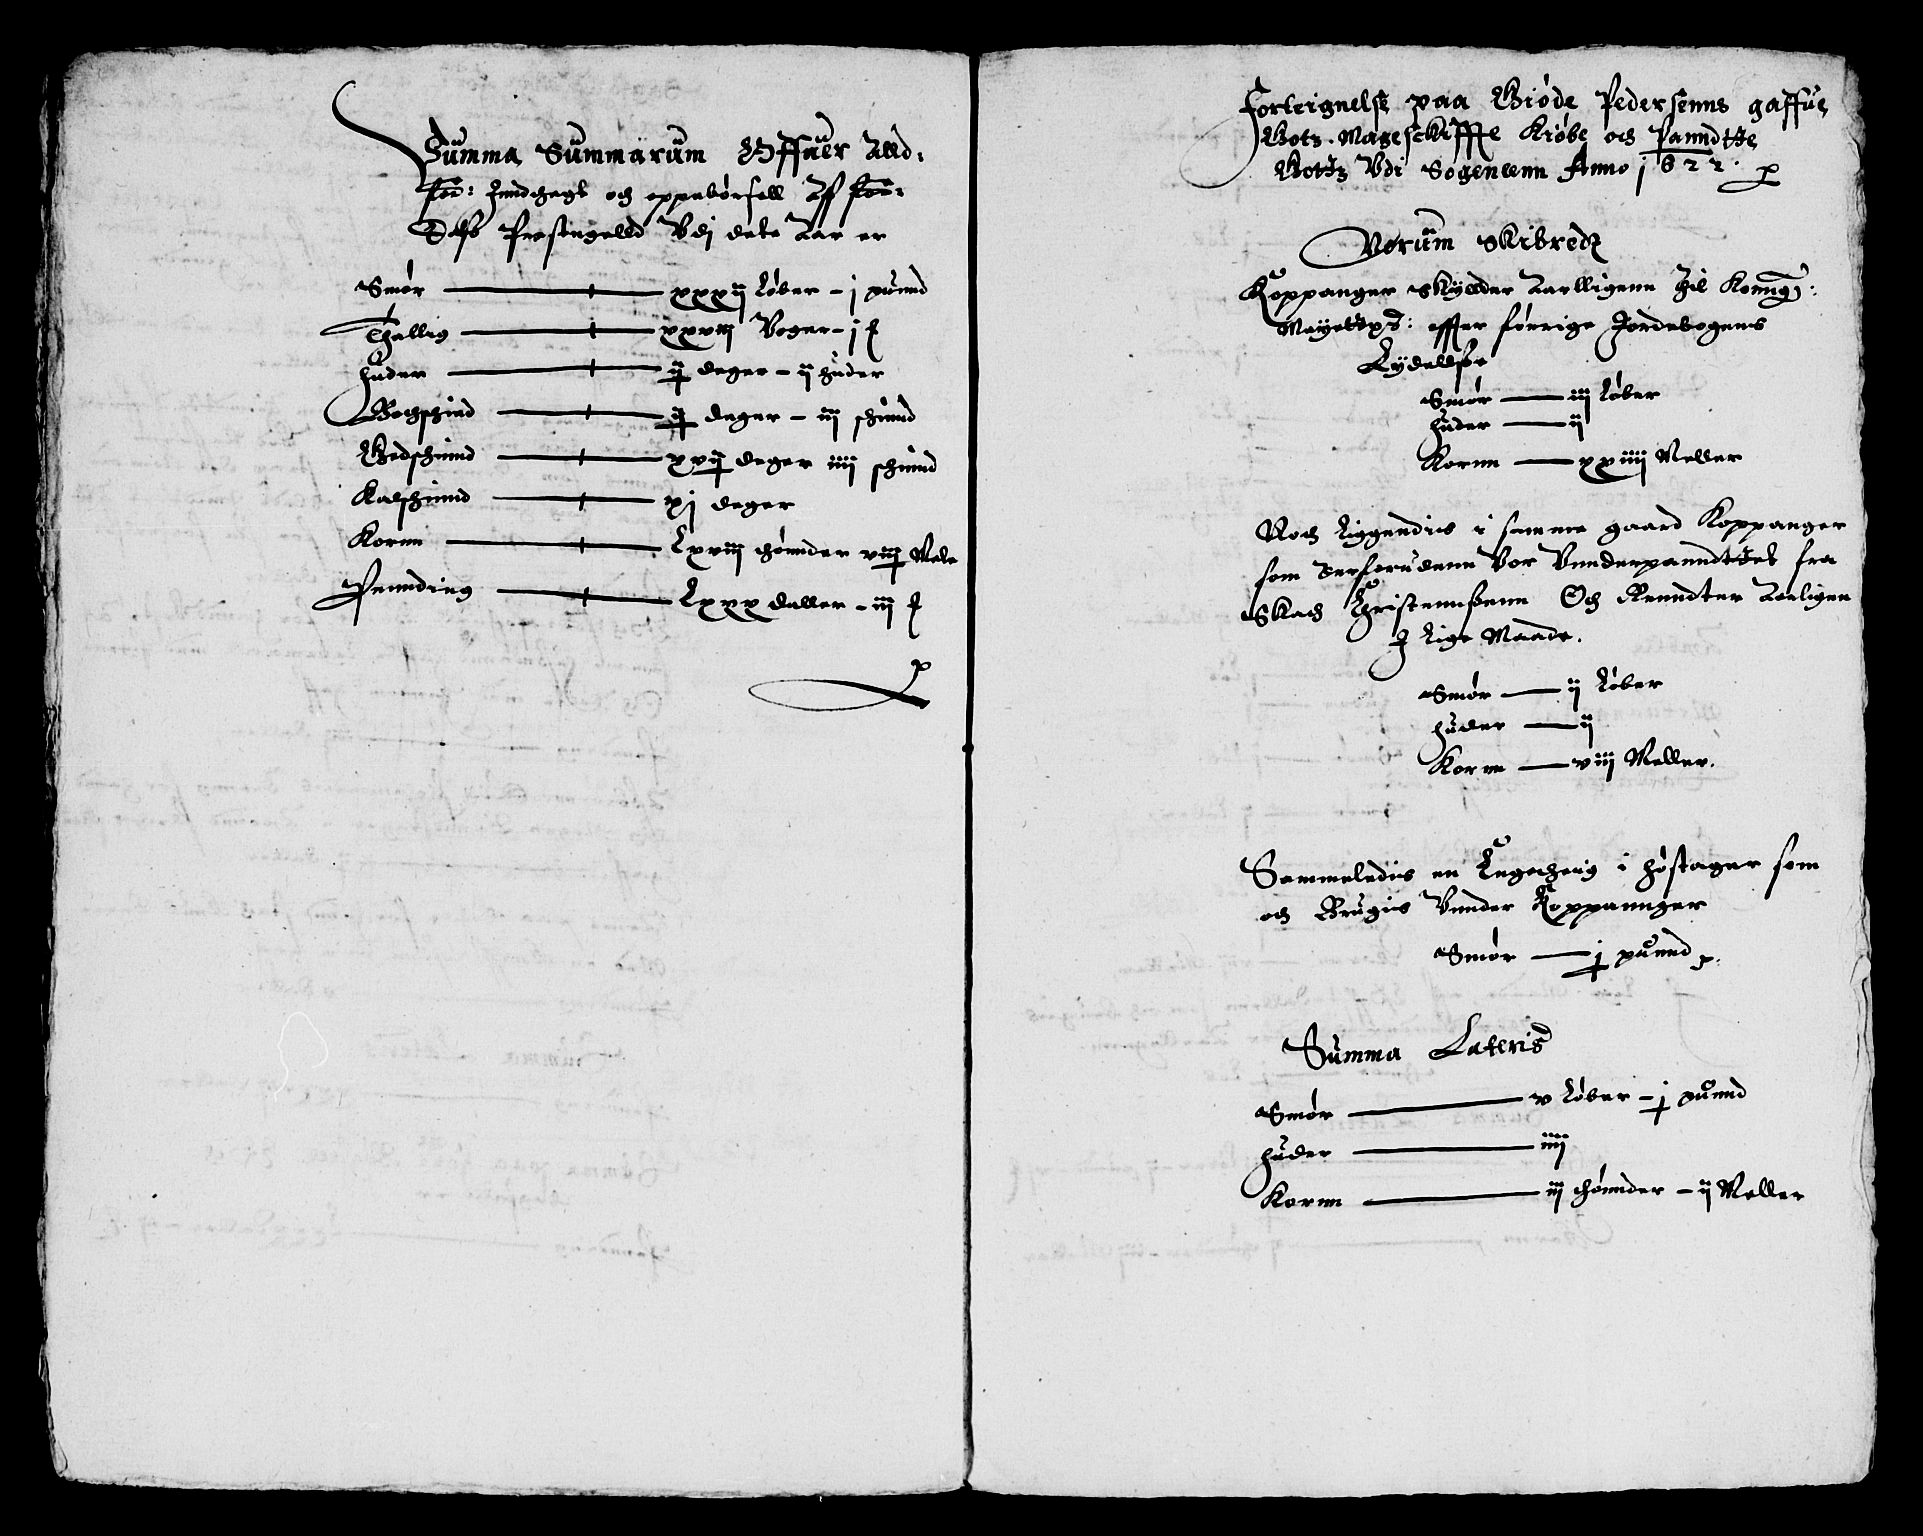 Summa Summarum Offuer Alld:
for: Inndthegt och oppebørsell Aff for:
Dals Prestegelld Vdj dete Aar er
Smør — xxxij Løber – j pund
Thallig — xxxviij Voger – j
Huder — ij deger – ij huder
Bochschind — ij deger – iij schinnd
Gedschinnd — xxij deger iiij schinnd
Kalfschinnd — xj deger
Kornn — Lxviij thønnder viij Mele
Penndinng — Lxxx daller – iij

Forteignelse paa Giøde Pedersenns gaffue
Gotz. Mageschiffte Kiøbe och Panndtte
Gottz Vdi Sogenn Anno 1622.
Norumm Skibredz
Koppanger Skyllder Aarlligenn Til Konng:
Mayettz: effter førrige Jordebogens
Lydellsse
Smør — iij Løber
Huder — ij
Kornn — xxiiij Meller
Noch Liggendis i samme gaard Koppanger
som derforudenn Vor Vunderpanndttet fra
Skach Christennsenn Och Renndter Aarligen
I Lige Maade.
Smør — ij Løber
Huder — ij
Kornn — viij Meller.
Sammeledis en i Høstager som
och Brugis Vnnder Koppannger
Smør — j punnd
Summa Lateris
Smør — v Løber – j punnd
Huder — iiij
Kornn — iij thønnder – ij Meller